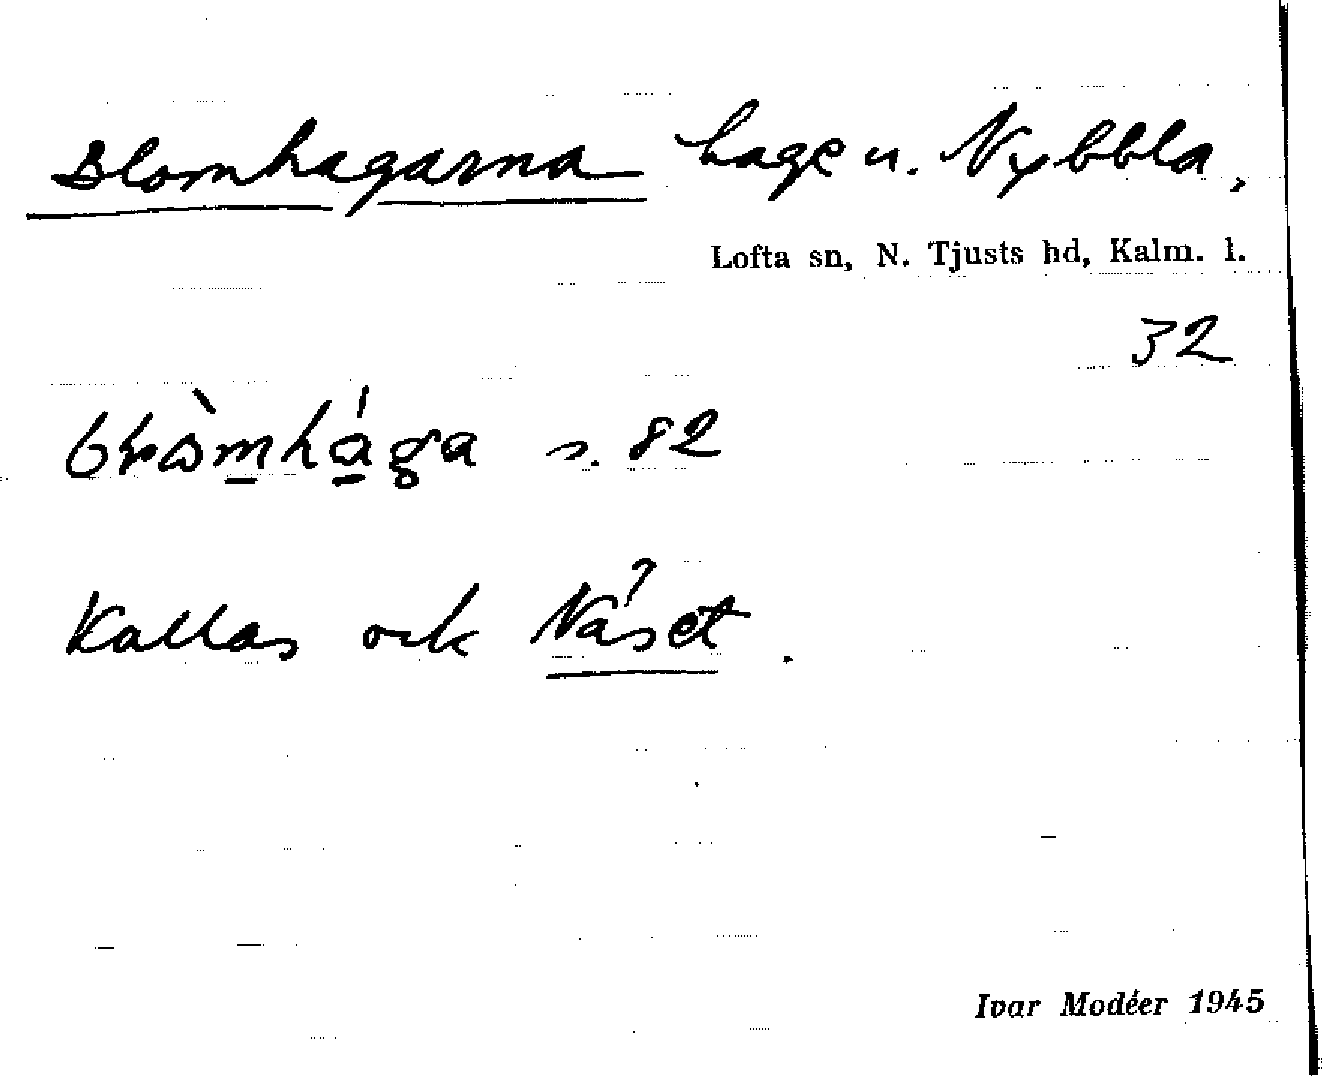 Blomhagarna hage u. Nybbla,
Lofta sn, N. Tjusts hd, Kalm. l.
32
s. 82
Kallas ock Näset.
Ivar Modéer 1945